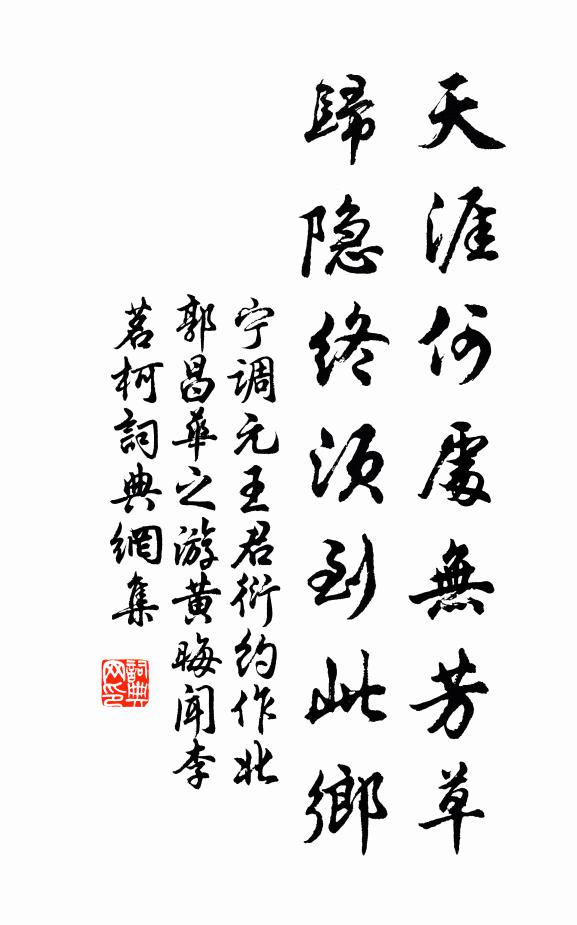 天涯何處無芳草
歸隐終須到此鄉
宁調元王君衍約作北
郭昌華之游黄晦闻李
茗柯詞典網集
詞典网印